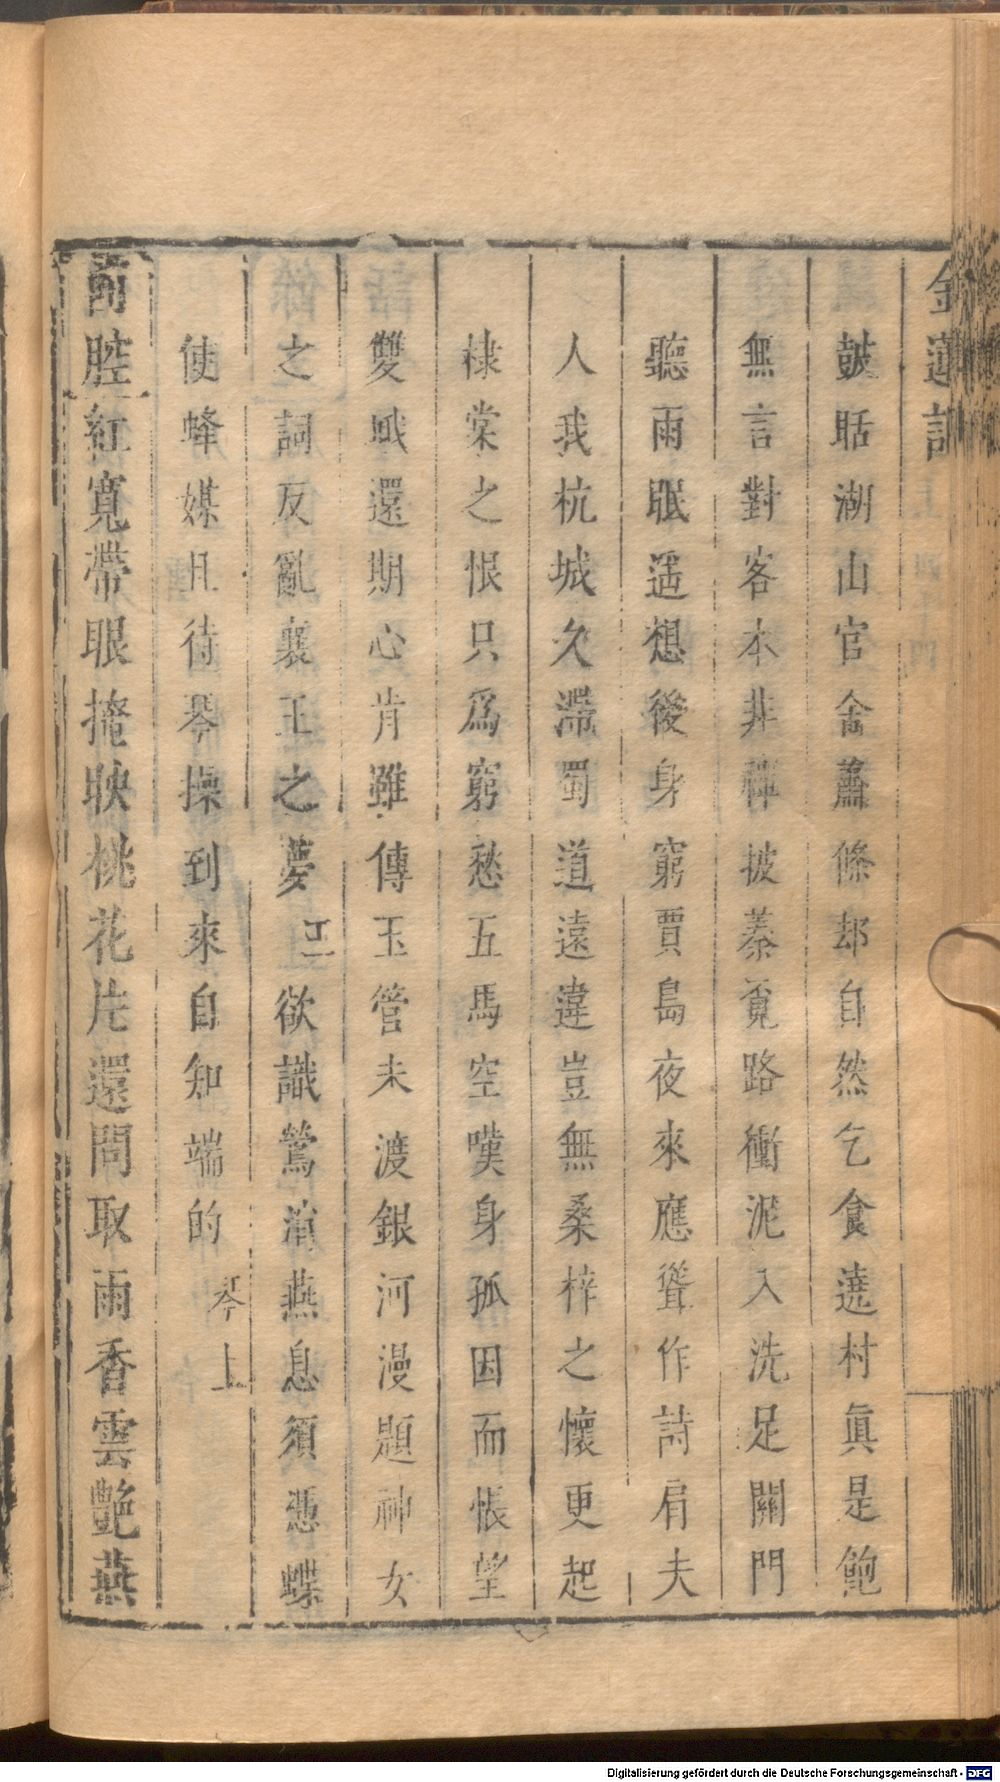 金蓮記
鼓聒湖山官舍蕭條却自然乞食遶村眞是飽
無言對客本非禪披蓁覓路衝泥入洗足關門
聽雨眠遥想後身窮賈島夜來應聳作詩肩夫
人我杭城久滯蜀道遠違豈無桑梓之懷更起
棣棠之恨只爲窮愁五馬空嘆身孤因而悵望
雙娥還期心肯雖傳玉管未渡銀河漫題神女
之詞反亂襄王之夢 欲識鶯消燕息須憑蝶
使蜂媒且待琴操到來自知端的 琴上
前腔紅寬帶眼掩映桃花片還問取雨香雲艶燕
Digitalisierung gefördert durch die Deutsche Forschungsgemeinschaft - DFG